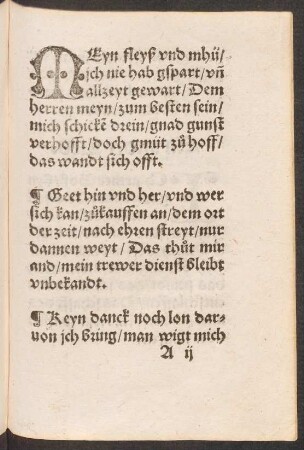 MEyn fleyß vnd mhü/
jch nie hab gspart/ vn̄
allzeyt gewart/ Dem
herren meyn/ zum besten sein/
mich schickē drein/ gnad gunst
verhofft/ doch gmüt zů hoff/
das wandt sich offt.
¶ Gret hin vnd her/ vnd wer
sich kan/ zůkauffen an/ dem ort
der zeit/ nach ehren streyt/ nur
dannen weyt/ Das thůt mir
and/ mein trewer dienst bleibt
vnbekandt.
¶ Keyn danck noch lon dar-
uon jch bring/ man wigt mich
A ij